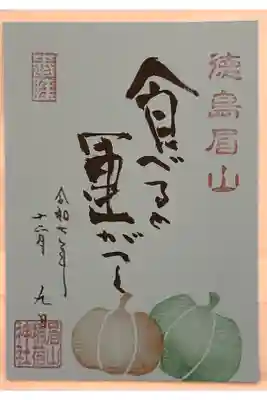 徳島眉山
食べると
運がつく
令和六年
十二月 九日
眉山稲荷神社